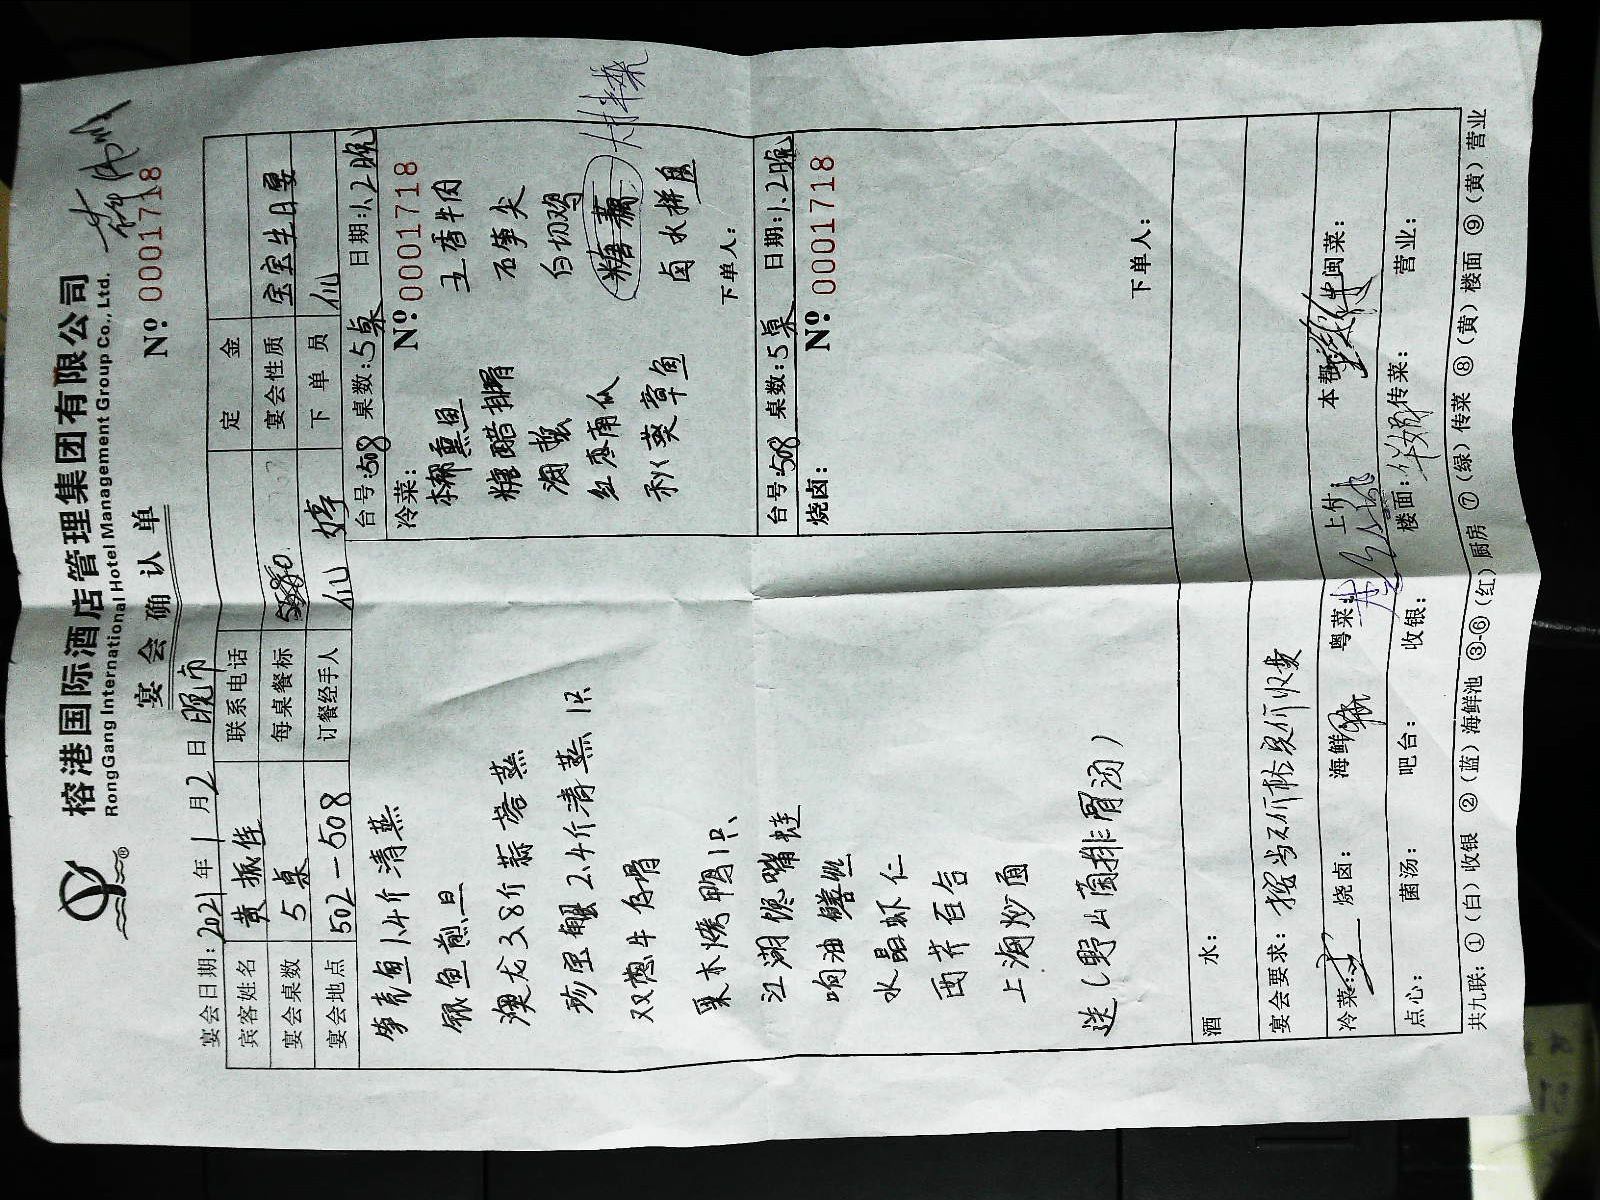 榕港国际酒店管理集团有限公司
RongGang International Hotel Management Group Co., Ltd.
宴会确认单
№: 0001718
宴会日期: 2021 年 1 月 2 日 晚市
宾客姓名 黄振佳 联系电话 定金
宴会桌数 5桌 每桌餐标 宴会性质 宝宝生日宴
宴会地点 502-508 订餐经手人 仙婷 下单员 仙
台号: 508 桌数: 5桌 日期: 1.2晚
冷菜: №: 0001718
本帮熏鱼 五香牛肉
糖醋排骨 石笋尖
海蜇 白切鸡
红枣南瓜 糖藕
秋葵章鱼 卤水拼盘
下单人:
台号: 508 桌数: 5桌 日期: 1.2晚
烧卤: №: 0001718
下单人:
笋壳鱼1.4斤清蒸
银鱼煎旦
澳龙3.8斤蒜蓉蒸
珍宝蟹2.4斤清蒸1只
双葱牛仔骨
果木烤鸭1只
江湖馋嘴蛙
响油鳝丝
水晶虾仁
西芹百合
上海炒面
送(野山菌排骨汤)
酒水:
宴会要求: 按当天斤标足斤收费
冷菜: 烧卤: 海鲜: 粤菜: 上什 本帮: 闽菜:
点心: 菌汤: 吧台: 收银: 楼面: 传菜: 营业:
共九联: ①(白)收银 ②(蓝)海鲜池 ③-⑥(红)厨房 ⑦(绿)传菜 ⑧(黄)楼面 ⑨(黄)营业